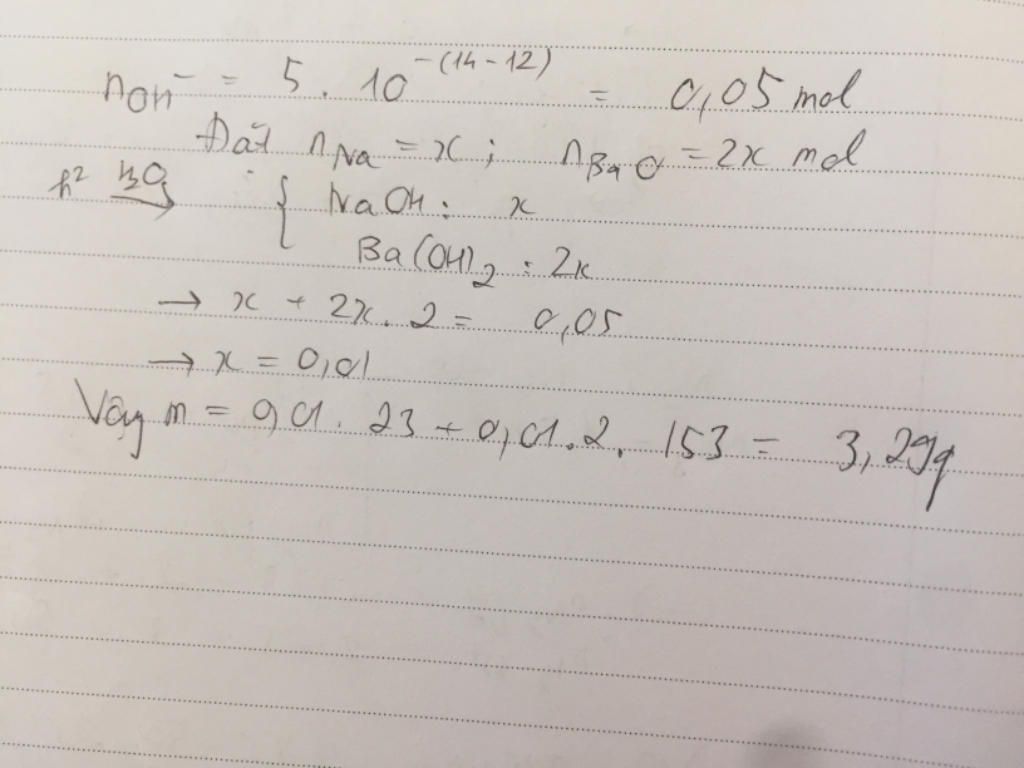 nOH⁻ = 5 . 10^-(14-12) = 0,05 mol
Đặt nNa = x ; nBaO = 2x mol
h² H₂O → { NaOH : x
Ba(OH)₂ : 2x
→ x + 2x . 2 = 0,05
→ x = 0,01
Vậy m = 0,01 . 23 + 0,01 . 2 . 153 = 3,29g